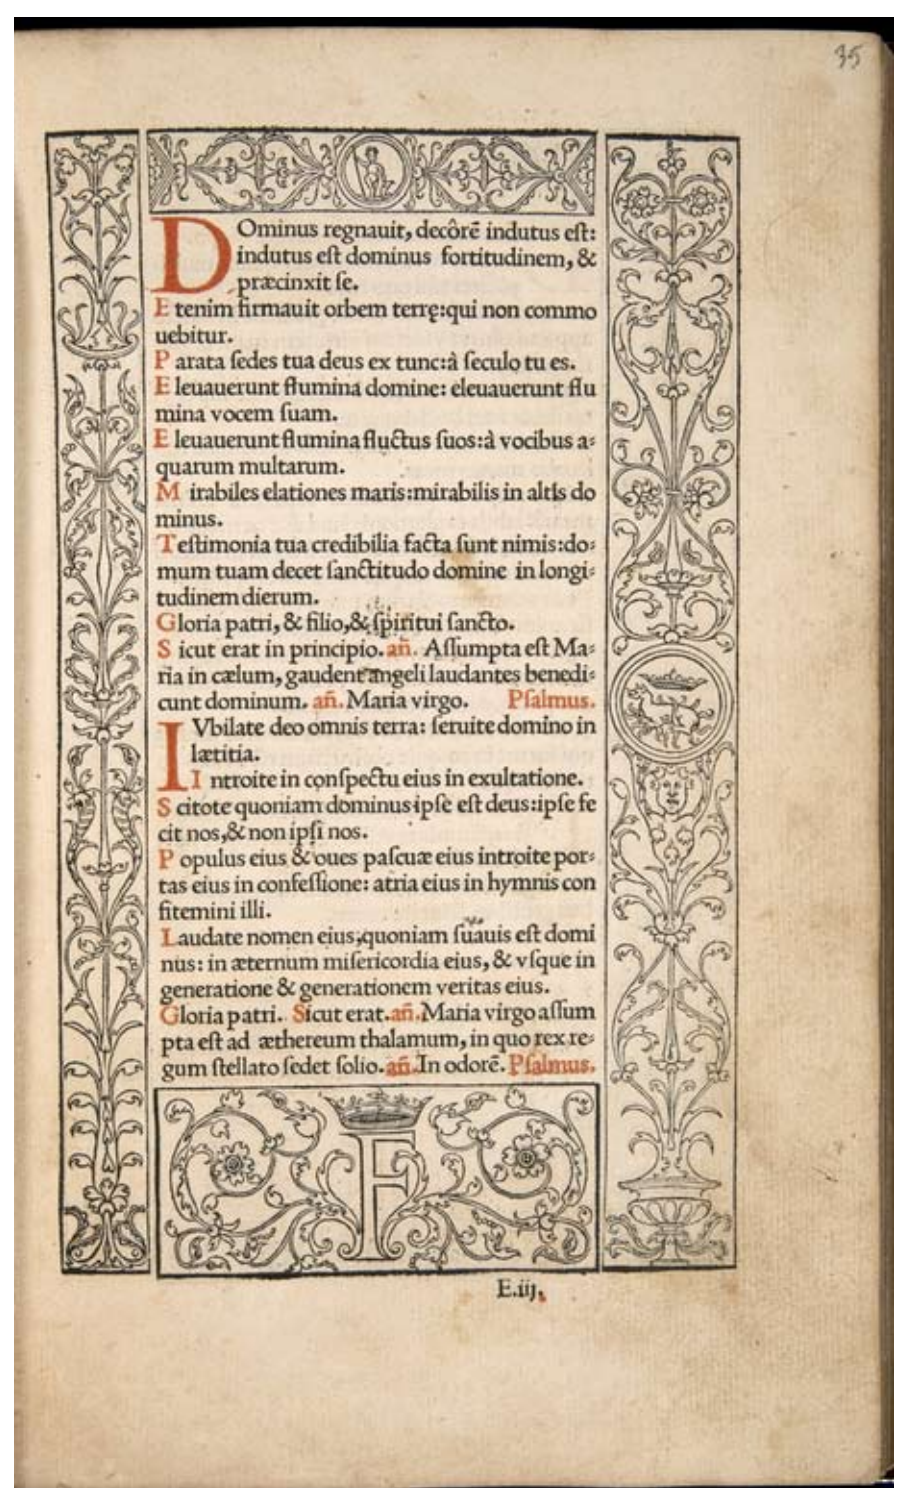 35
DOminus regnauit, decôrē indutus eſt:
indutus eſt dominus fortitudinem, &
præcinxit ſe.
E tenim firmauit orbem terrę:qui non commo
uebitur.
P arata ſedes tua deus ex tunc:à ſeculo tu es.
E leuauerunt flumina domine: eleuauerunt flu
mina vocem ſuam.
E leuauerunt flumina fluctus ſuos:à vocibus a-
quarum multarum.
M irabiles elationes maris:mirabilis in altis do
minus.
Teſtimonia tua credibilia facta ſunt nimis:do-
mum tuam decet ſanctitudo domine in longi-
tudinem dierum.
Gloria patri, & filio,& ſpiritui ſancto.
S icut erat in principio. añ. Aſſumpta eſt Ma-
ria in cælum, gaudent angeli laudantes benedi-
cunt dominum. añ. Maria virgo. Pſalmus.
IVbilate deo omnis terra: ſeruite domino in
lætitia.
I ntroite in conſpectu eius in exultatione.
S citote quoniam dominus ipſe eſt deus:ipſe fe
cit nos,& non ipſi nos.
P opulus eius & oues paſcuæ eius introite por-
tas eius in confeſſione: atria eius in hymnis con
fitemini illi.
Laudate nomen eius,quoniam ſuauis eſt domi
nus: in æternum miſericordia eius, & vſque in
generatione & generationem veritas eius.
Gloria patri. Sicut erat.añ.Maria virgo aſſum
pta eſt ad æthereum thalamum, in quo rex re-
gum ſtellato ſedet ſolio.añ.In odorē. Pſalmus.
F
E.iij.